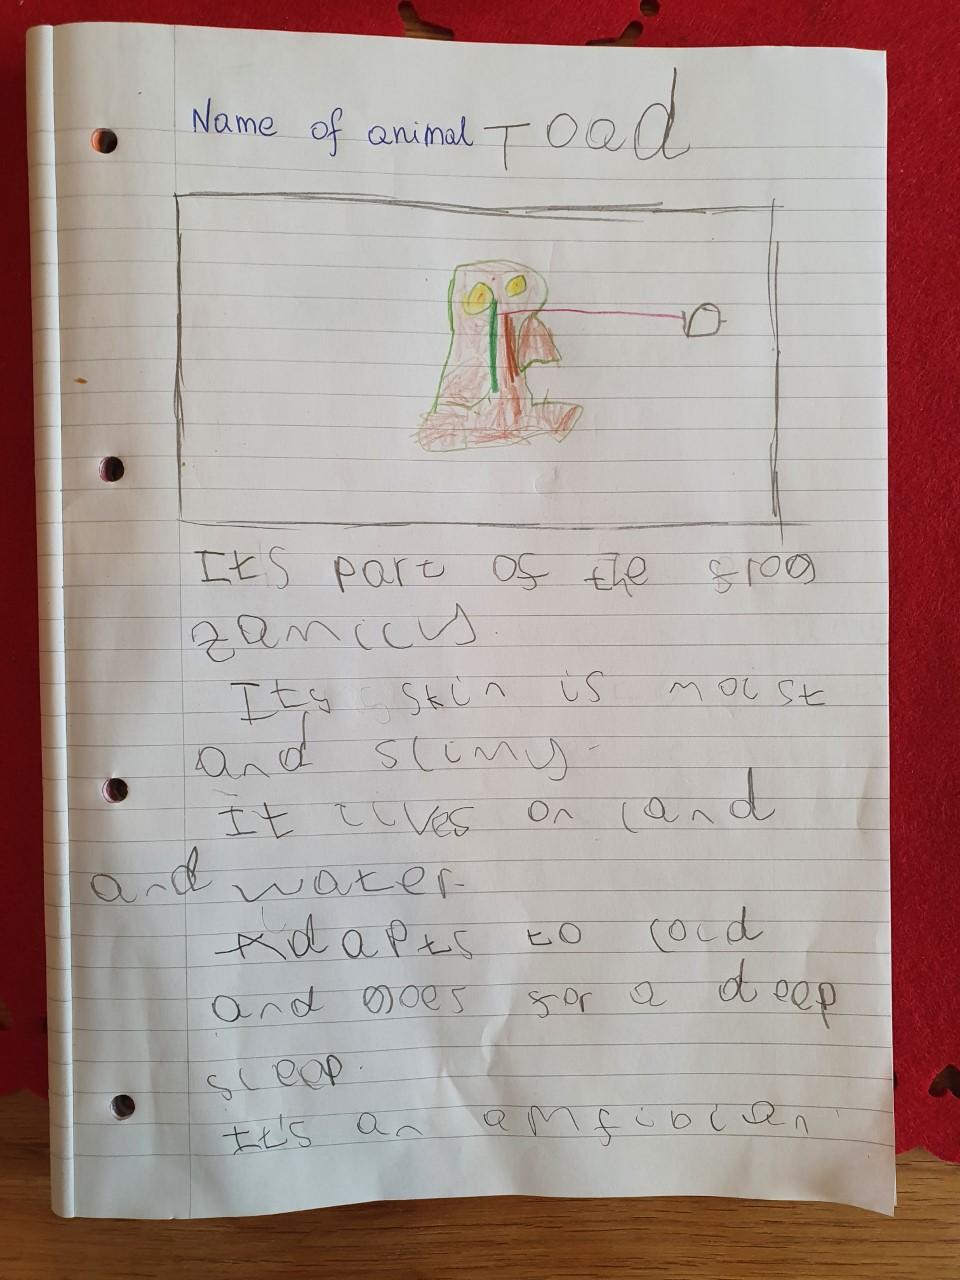 Name of animal Toad
It's part of the frog
zamicuy.
Its skin is moist
and slimy.
It lives on land
and water.
Adapts to cold
and goes for a deep
sleep.
It's an amfibian